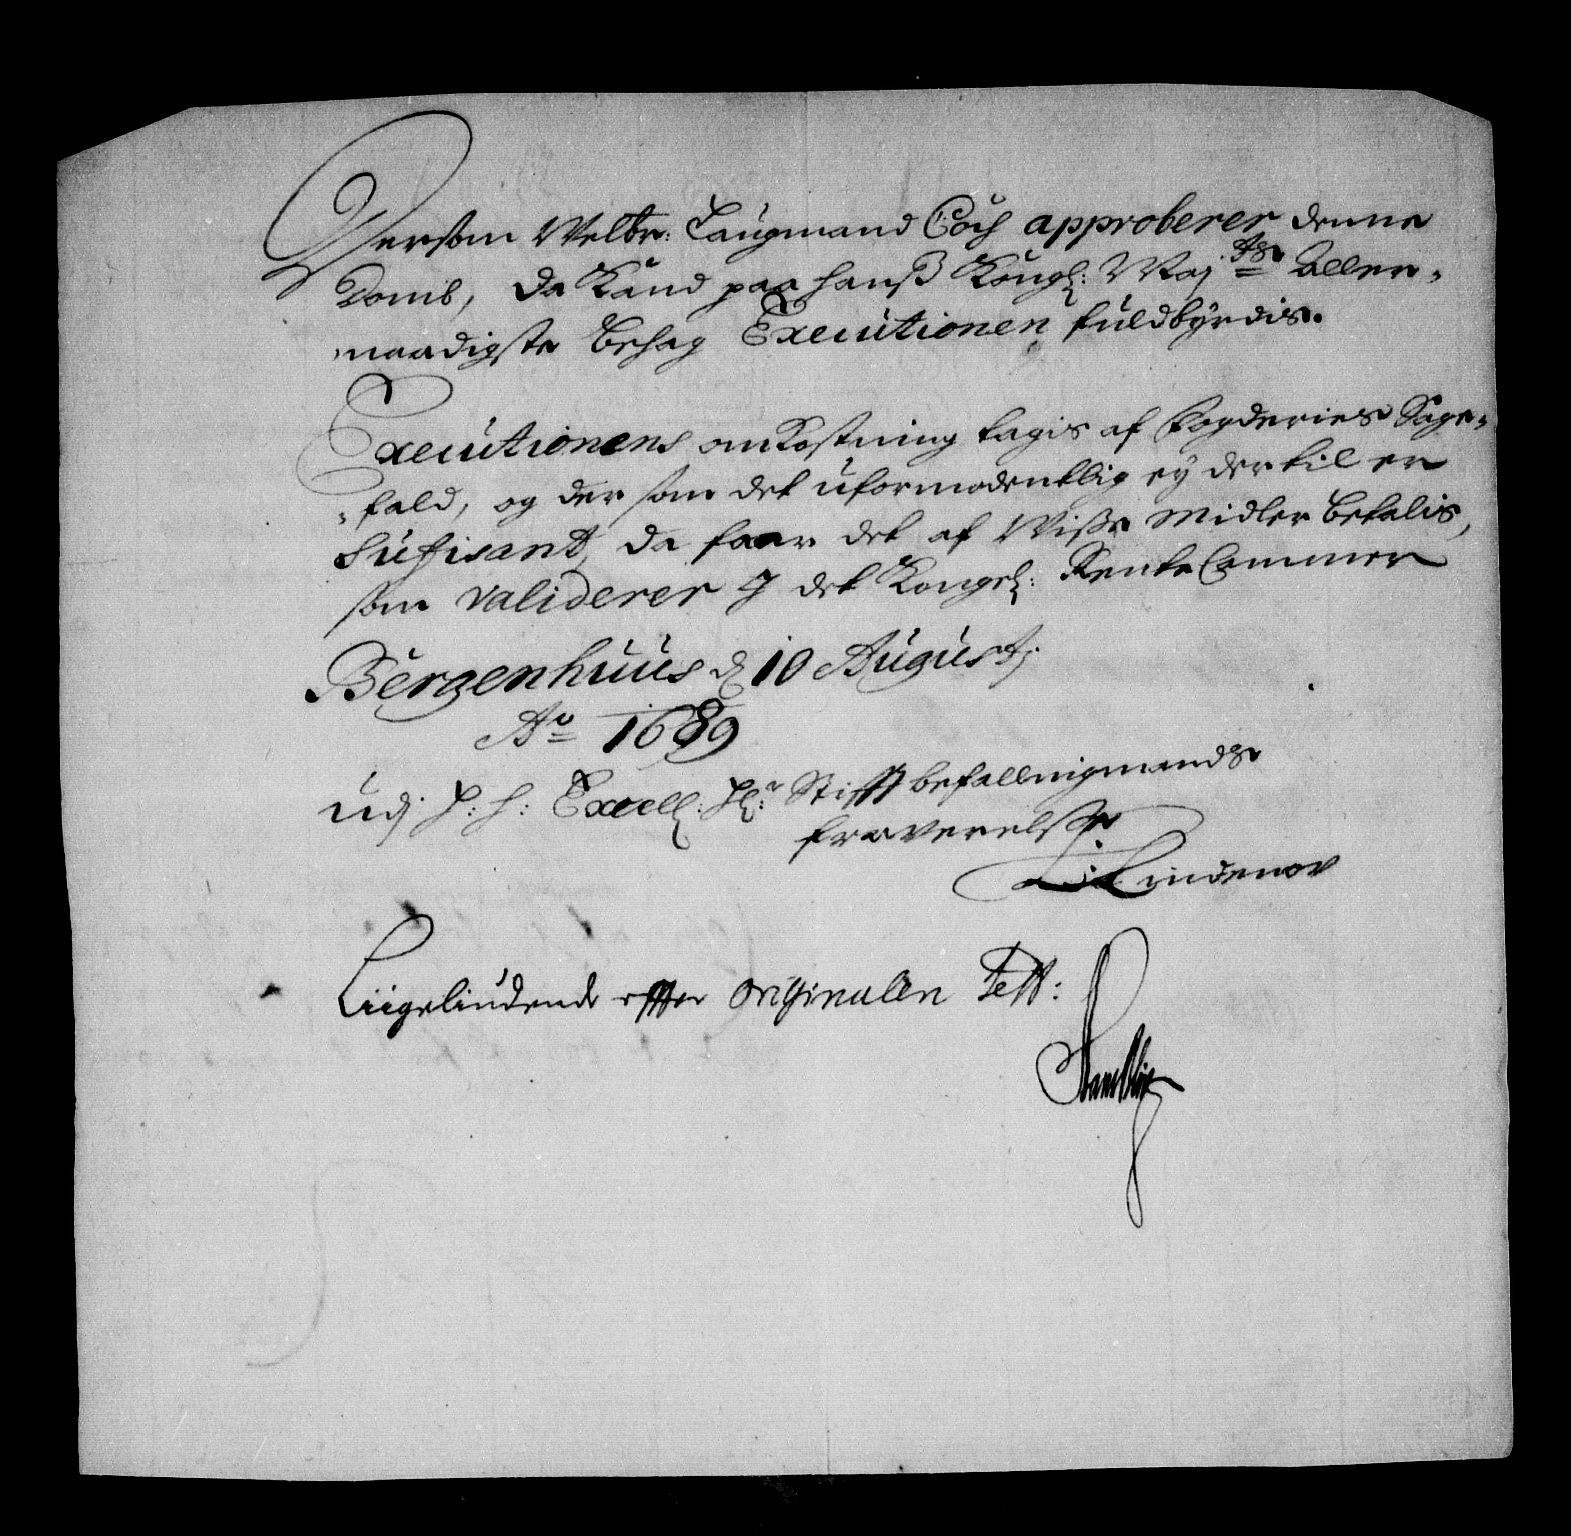 Dersom Welbr: Laugmand Coch approberer denne
Domb, da kand paa hanß Kongl: Maj.ts Aller-
naadigste behag Executionen fuldbyrdis.
Executionens omKostning tagis af fogderies Sage-
fald, og der som det uformodentlig ey der til er
Sufisant, da faar det af Wiße Midler betalis,
som validerer J det Kongel: RenteCammer
Bergenhuus d 10 Augusti
Ao 1689
Udj H: H: Excell: Hr: Stifftbefallnigmands
fraverelße
Lindenov
Liigeliudende effter Originalen Test: